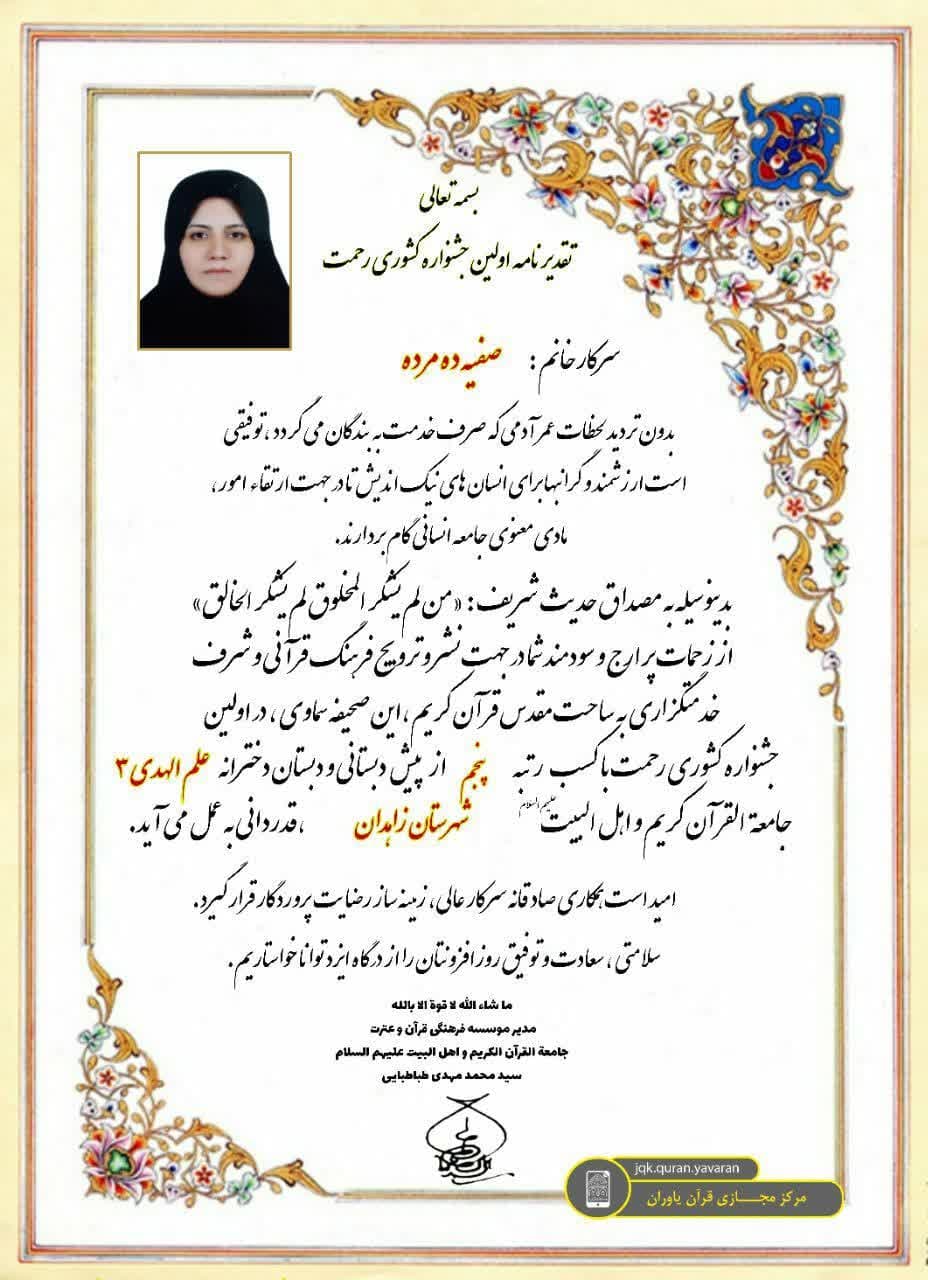 بسمه تعالی
تقدیرنامه اولین جشنواره کشوری رحمت
سرکار خانم : صفیه ده مرده
بدون تردید لحظات عمر آدمی که صرف خدمت به بندگان می گردد ، توفیقی
است ارزشمند و گرانبها برای انسان های نیک اندیش تا در جهت ارتقاء امور ،
مادی معنوی جامعه انسانی گام بردارند .
بدینوسیله به مصداق حدیث شریف : « من لم یشکر المخلوق لم یشکر الخالق »
از زحمات پر ارج و سودمند شما در جهت نشر و ترویج فرهنگ قرآنی و شرف
خدمتگزاری به ساحت مقدس قرآن کریم ، این صحیفه سماوی ، در اولین
جشنواره کشوری رحمت با کسب رتبه پنجم از پیش دبستانی و دبستان دخترانه علم الهدی ۳
جامعة القرآن کریم و اهل البیت علیهم السلام شهرستان زاهدان ، قدردانی به عمل می آید .
امید است همکاری صادقانه سرکار عالی ، زمینه ساز رضایت پروردگار قرار گیرد .
سلامتی ، سعادت و توفیق روز افزونتان را از درگاه ایزد توانا خواستاریم .
ما شاء الله لا قوة الا بالله
مدیر موسسه فرهنگی قرآن و عترت
جامعة القرآن الکریم و اهل البیت علیهم السلام
سید محمد مهدی طباطبایی
jqk.quran.yavaran
مرکز مجـــازی قرآن یاوران